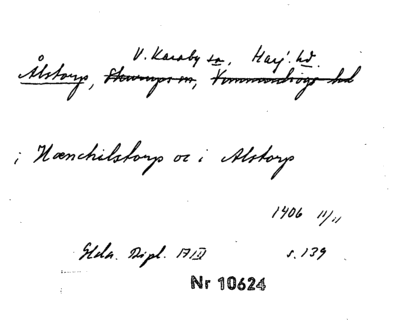 V. Karaby sn, Harj. hd.
Ålstorp, Skurups sn, Vemmenhögs hd
i Hænchilstorp oc i Alstorp
1406 11/11
Gldn. Dipl. 17 s. 139
Nr 10624